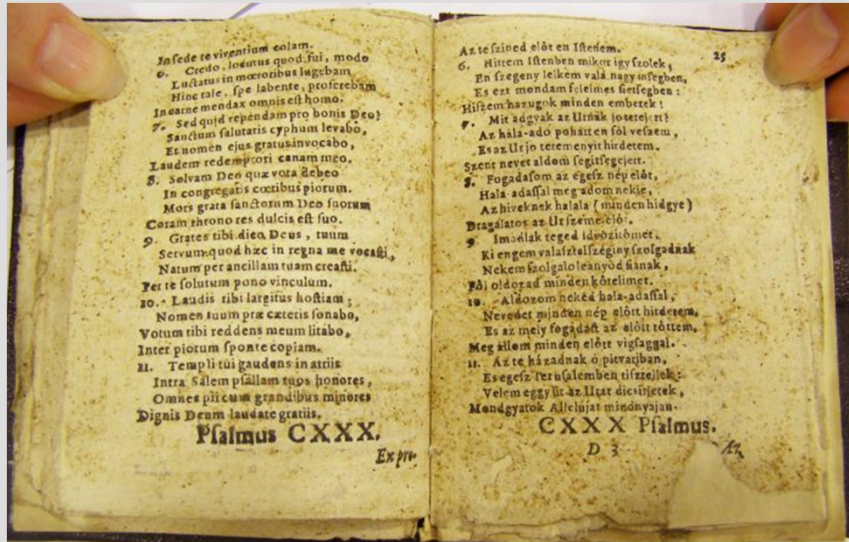 In sede te viventium colam.
6. Credo, locutus quod fui, modo
Luctatus in mœroribus lugebam
Hinc tale, spe labente, proferebam
In carne mendax omnis est homo.
7. Sed quid rependam pro bonis Deo?
Sanctum salutaris cyphum levabo,
Et nomen ejus gratus invocabo,
Laudem redemptori canam meo.
8. Solvam Deo quæ vota debeo
In congregatis cœtibus piorum.
Mors grata sanctorum Deo suorum
Coram throno res dulcis est suo.
9. Grates tibi dico Deus, tuum
Servum quod hæc in regna me vocasti,
Natum per ancillam tuam creasti.
Per te solutum pono vinculum.
10. Laudis tibi largitus hostiam;
Nomen tuum præ cæteris sonabo,
Votum tibi reddens meum litabo,
Inter piorum sponte copiam.
11. Templi tui gaudens in atriis
Intra Salem psallam tuos honores,
Omnes pii cum grandibus minores
Dignis Deum laudate gratiis.
Psalmus CXXX.
Ex pro-
Az te szined elöt en Istenem.
25
6. Hittem Istenben mikor igy szolek,
En szegeny lelkem vala nagy insegben,
Es ezt mondam felelmes sietsegben:
Hiszem hazugok minden emberek!
7. Mit adgyak az Urnak jo
Az hála-adó pohárt en föl veszem,
Es az Ur jo teremenyit hirdetem.
Szent nevet aldom segitsegejert.
8. Fogadasom az egesz nép elöt,
Hala adassal meg adom nekie,
Az hiveknek halala (minden hidgye)
Dragálatos az Ur szeme elöt.
9. Imadlak teged idvözitömet,
Ki engem valasztal szeginy szolgadnak
Nekem szolgalo leanyod fianak,
Föl oldozad minden kötelimet.
10. Aldozom neked hala-adassal,
Nevedet minden nép elött hirdetem,
Es az mely fogadást az elöit töttem,
Meg állom minden elött vigsaggal.
11. Az te házadnak ó pitvariban,
Es egesz Jerusalemben tisztellek:
Velem eggyüt az Urat dicsirjetek,
Mondgyatok Allelujat mindnyajan.
CXXX Psalmus.
D 3
Az